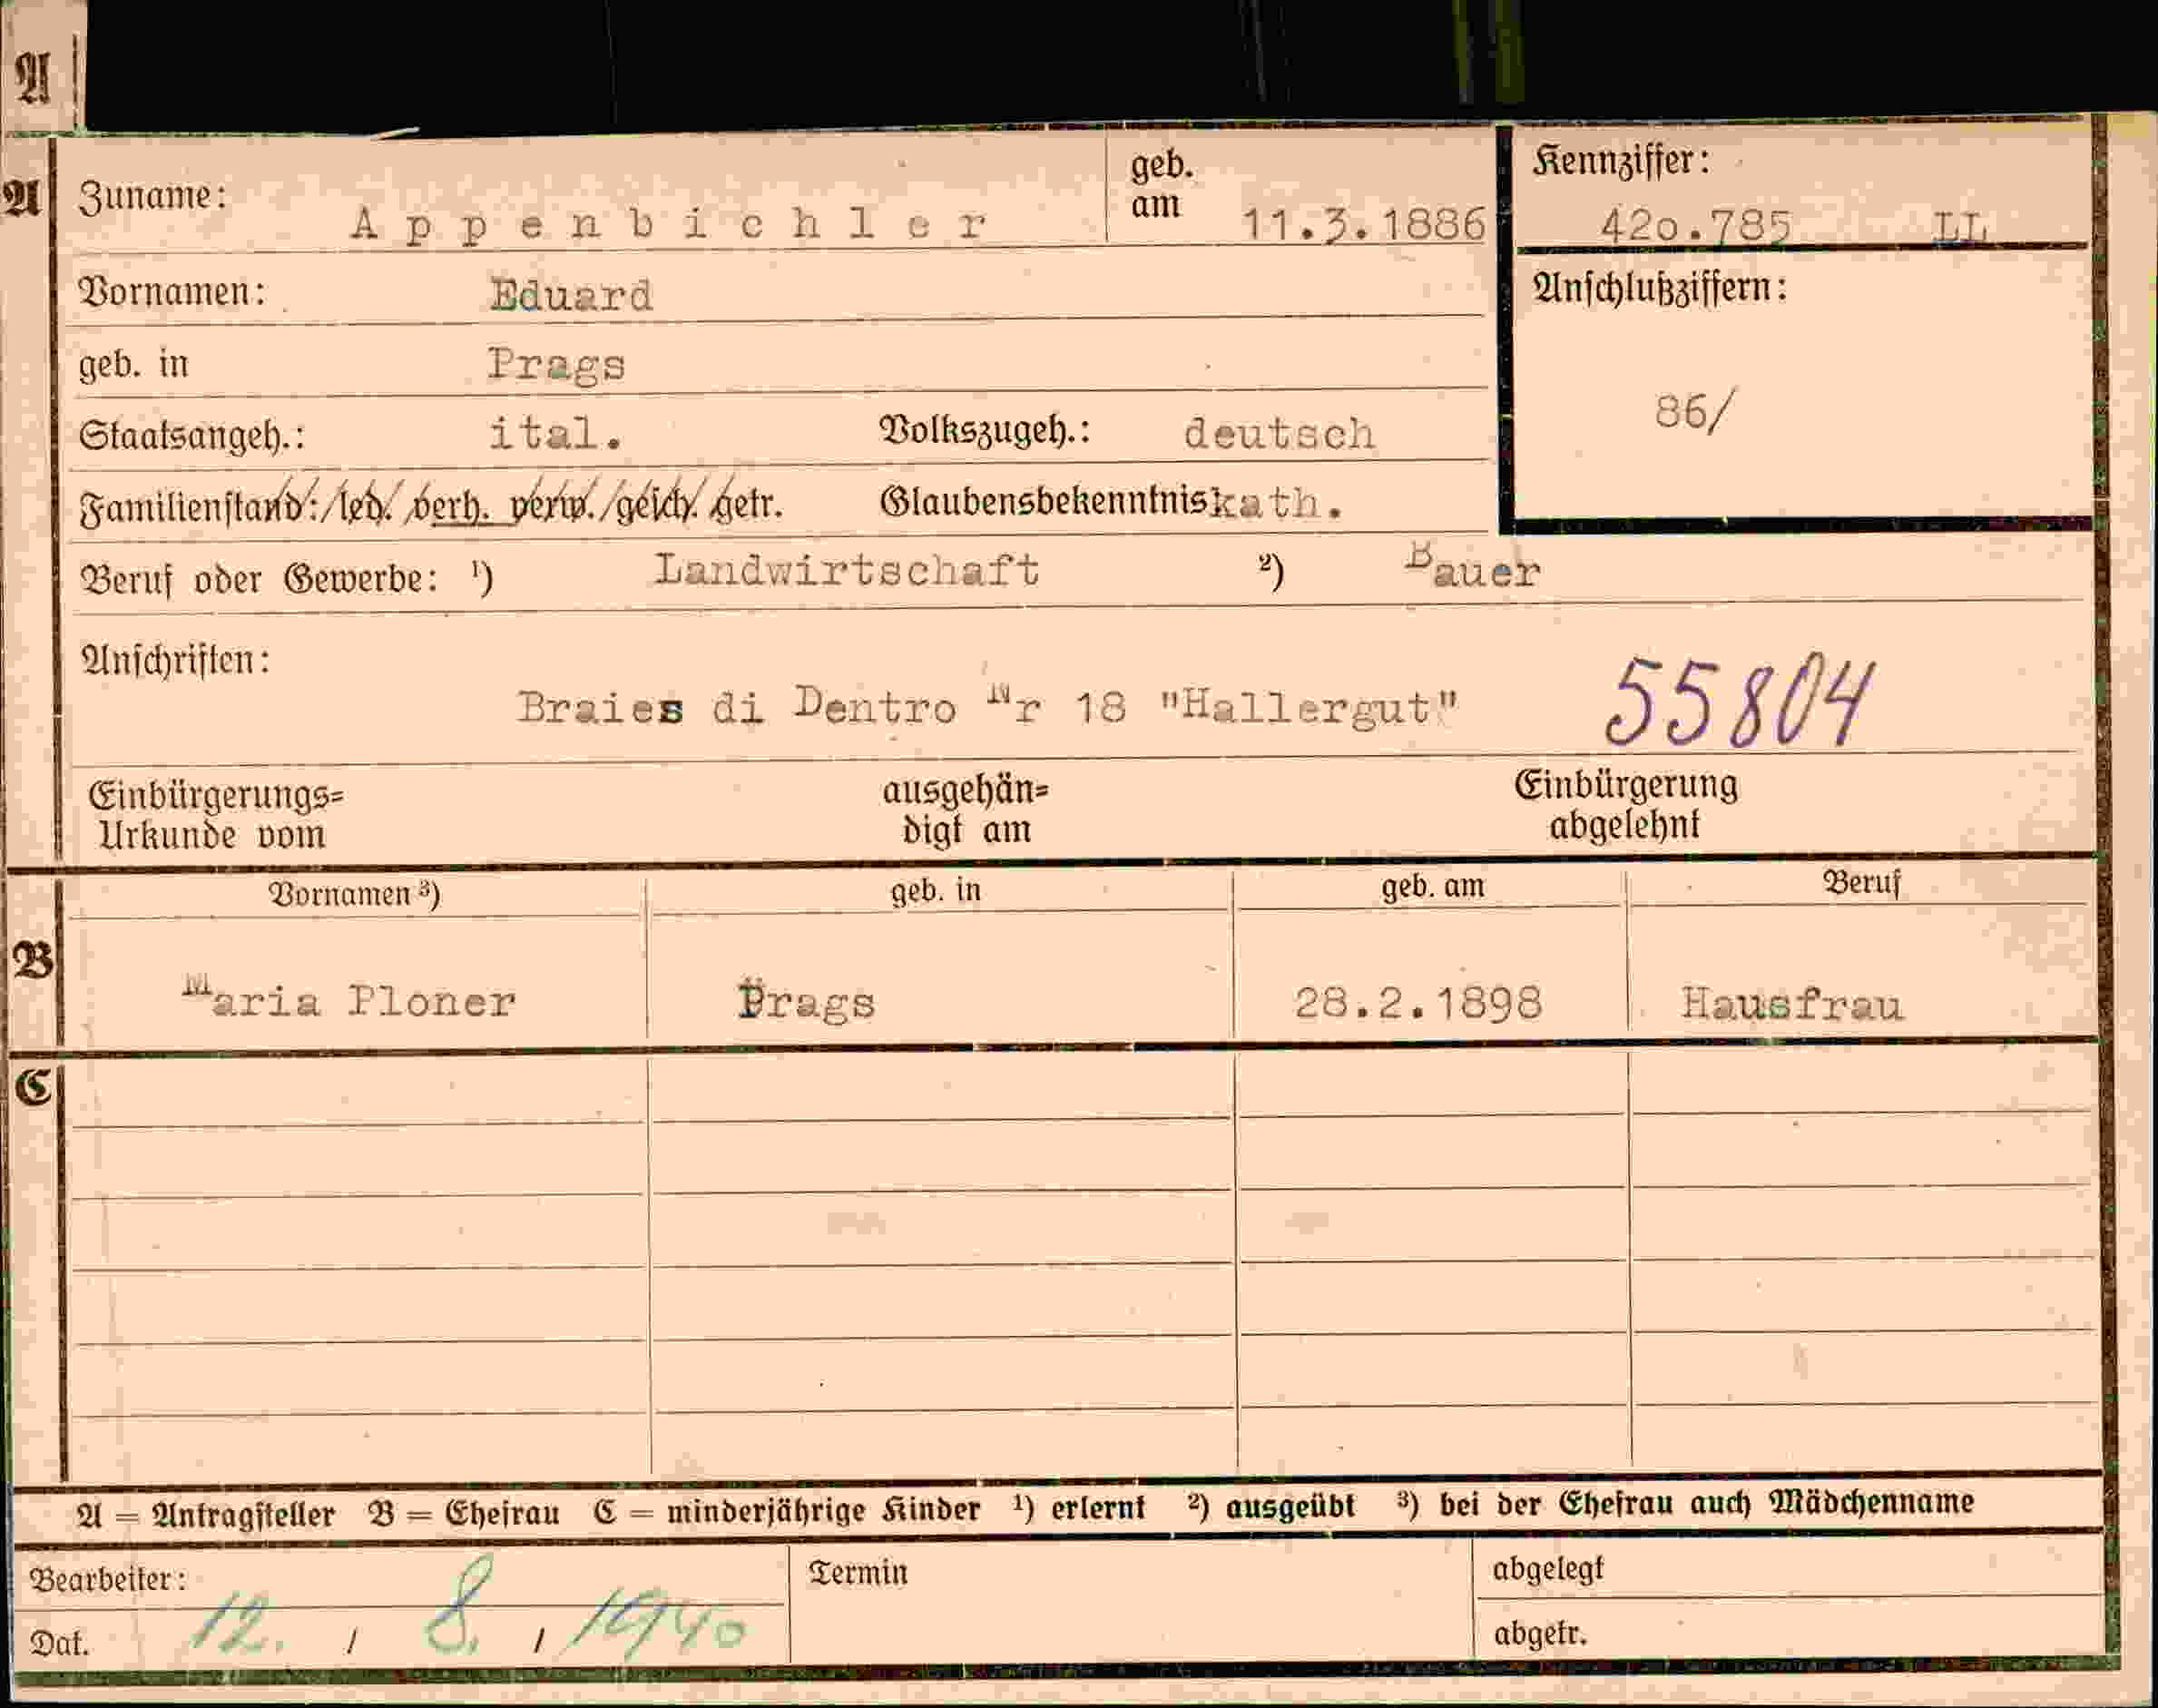 A
A Zuname: Appenbichler geb. am 11.3.1886 Kennziffer: 42o.785 LL
Vornamen: Eduard Anschlußziffern:
geb. in Prags
86/
Staatsangeh.: ital. Volkszugeh.: deutsch
Familienstand: led. verh. verw. gesch. getr. Glaubensbekenntnis kath.
Beruf oder Gewerbe: ¹) Landwirtschaft ²) Bauer
Anschriften:
Braies di Dentro Nr 18 "Hallergut" 55804
Einbürgerungs= ausgehän= Einbürgerung
Urkunde vom digt am abgelehnt
Vornamen ³) geb. in geb. am Beruf
B Maria Ploner Prags 28.2.1898 Hausfrau
C
A = Antragsteller B = Ehefrau C = minderjährige Kinder ¹) erlernt ²) ausgeübt ³) bei der Ehefrau auch Mädchenname
Bearbeiter: Termin abgelegt
Dat. 12. / 8. / 1940 abgetr.